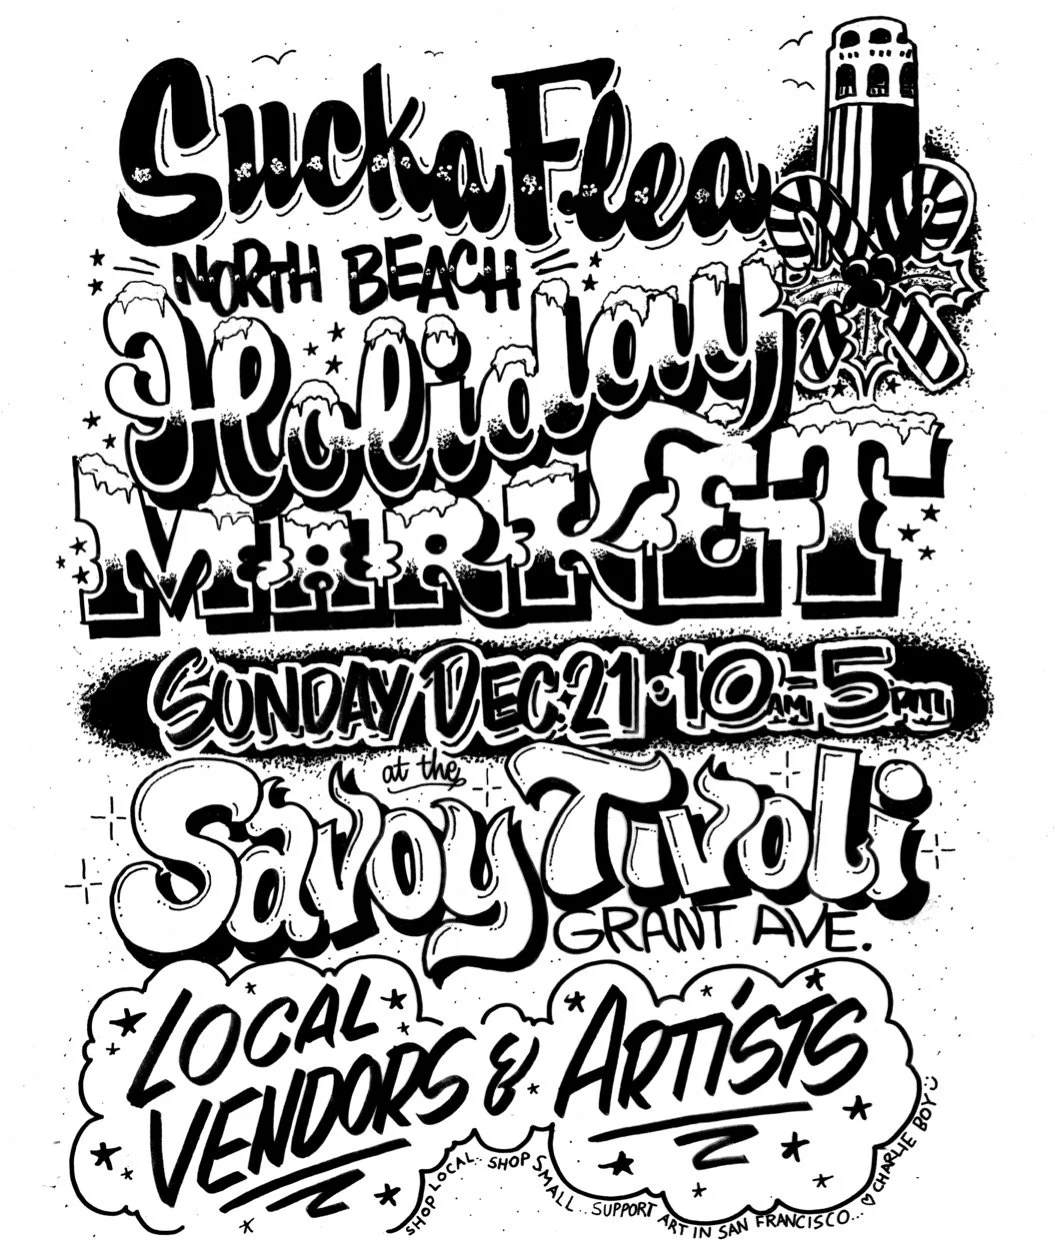 Sucka Flea
NORTH BEACH
Holiday
MARKET
SUNDAY DEC. 21 • 10AM-5PM
at the
Savoy Tivoli
GRANT AVE.
LOCAL
VENDORS & ARTISTS
SHOP LOCAL.. SHOP SMALL.. SUPPORT ART IN SAN FRANCISCO... ♡ CHARLIE BOY :)